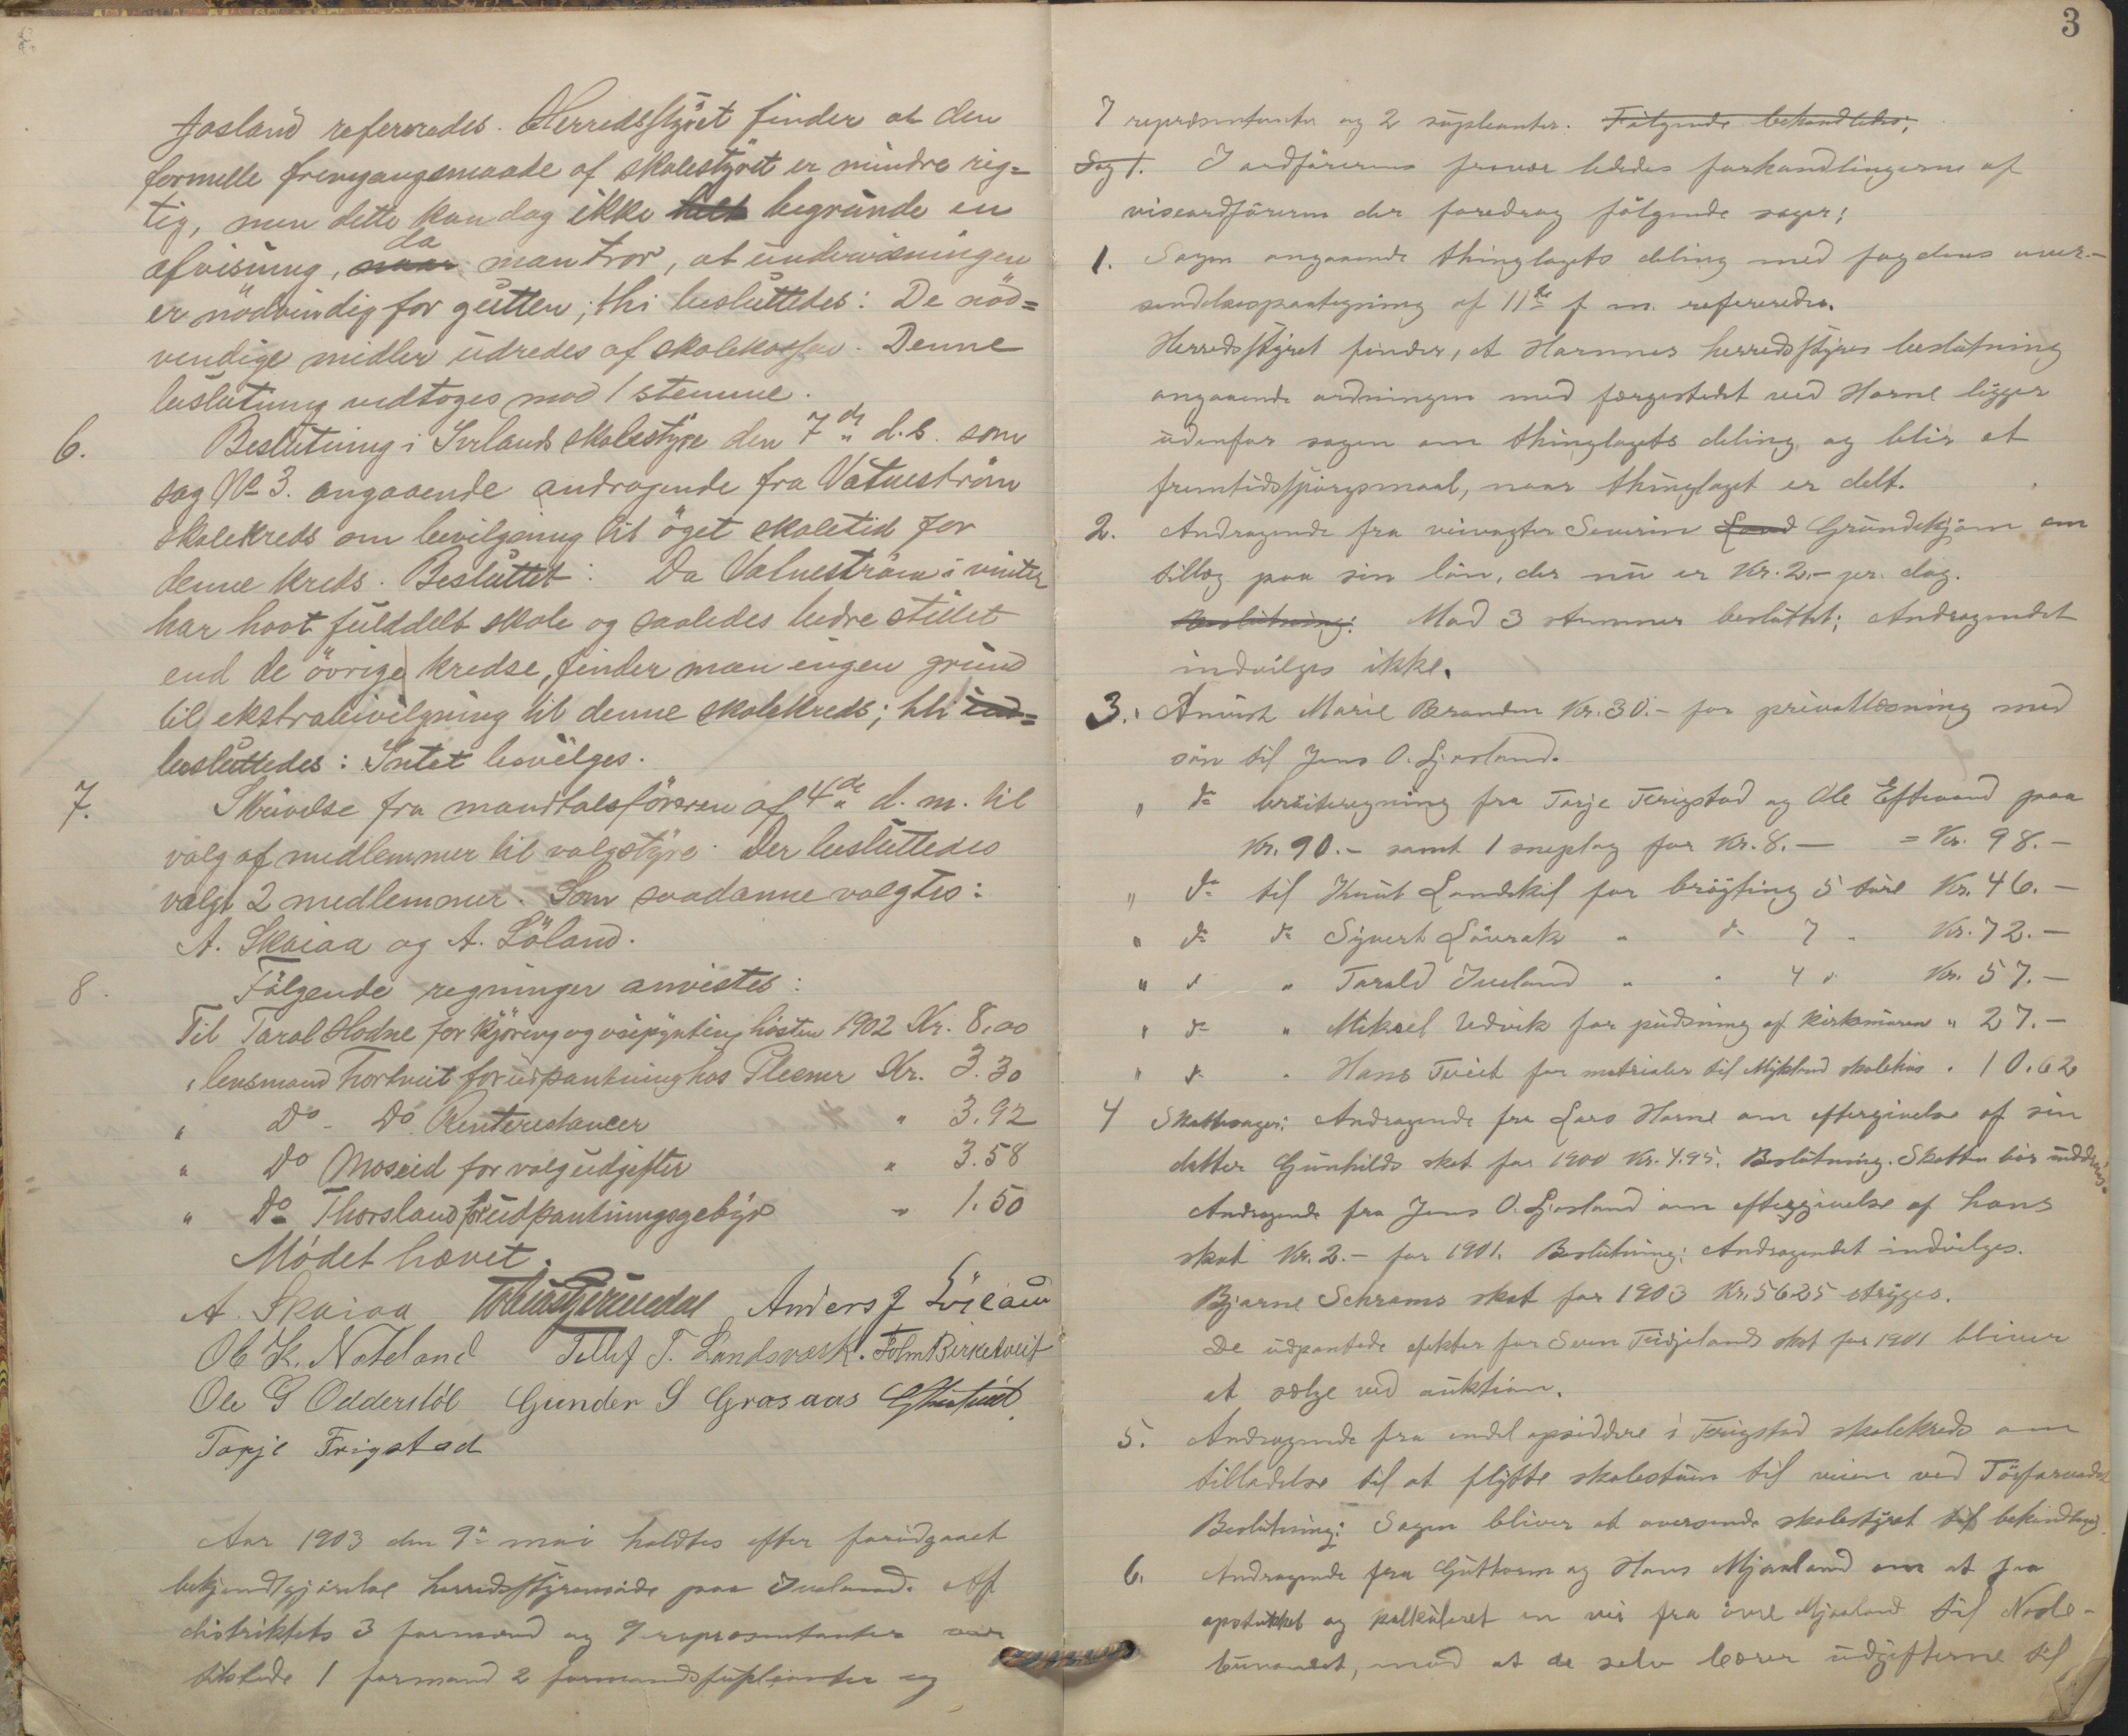 Josland refereredes. Herredsstyret finder at den
formelle fremgangsmaade af skolestyret er mindre rig=
tig, men dette kan dog ikke helt begrunde en
afvisning, naar da man tror, at undervisningen
er nödvendig for gutten; thi besluttedes: De nöd=
vendige midler udredes af skolekassen. Denne
beslutning vedtoges mod 1 stemme.
6. Beslutning i Iveland skolestyre den 7de d.s. som
sag No 3. angaaende andragende fra Vatneström
skolekreds om bevilgning til öget skoletid for
denne kreds. Besluttet: Da Vatneström i vinter
har havt fulddelt skole og saaledes bedre stillet
end de övrige kredse, finder man ingen grund
til ekstrabevilgning til denne skolekreds; thi ind=
besluttedes: Intet bevilges.
7. Skrivelse fra mandtalsföreren af 4de d.m. til
valg af medlemmer til valgstyre. Der besluttedes
valgt 2 medlemmer. Som saadanne valgtes:
A. Skaiaa og A. Löland.
8. Fölgende regninger anvistes:
Til Taral Hodne for kjöring og veipynting hösten 1902 Kr. 8,00
" lensmand Tortveit for udpantning hos Plesner Kr. 3.30
" Do - Do Renterestancer " 3.92
" Do Moseid for valgudgifter " 3.58
" Do Thorsland for udpantningsgebyr " 1.50
Mödet hævet.
A. Skaiaa Anders J Löland
Ole K. Nateland Tellef T. Landsværk. Tolm Birketveit
Ole G Odderstöl Gunder S Grosaas
Torje Frigstad
Aar 1903 den 9de mai holdtes efter foridgaaet
bekjendtgjörelse herredsstyremöde paa Iveland. Af
distriktets 3 formænd og 9 repræsentanter var
tilstede 1 formand 2 formandssupleanter og
3
7 repræsentanter og 2 supleanter. Fölgende behandledes;
Sag 1. I ordförerens fravær lededes forhandlingerne af
viseordföreren der foredrog fölgende sager;
1. Sagen angaaende thinglagets deling med fogdens over-
sendelsespaategning af 11te f.m. refereredes.
Herredsstyret finder, at Hornnes herredsstyres beslutning
angaaende ordningen med færgestedet ved Horne ligger
udenfor sagen om thinglagets deling og blir et
fremtidsspörgsmaal, naar thinglaget er delt.
2. Andragende fra veivogter Severin Land Grundekjön om
tillæg paa sin lön, der nu er Kr. 2,- pr. dag.
Beslutning: Mod 3 stemmer besluttet; Andragendet
indvilges ikke.
3. Anvist Marie Branden Kr. 30.- for privatlæsning med
sön til Jens O. Ljosland.
" do bröiteregning fra Torje Frigstad og Ole Eftevand paa
Kr. 90.- samt 1 sneplog for Kr. 8.- = Kr. 98.-
" do til Knut Landskil for bröyting 5 ture Kr. 46.-
" do do Syvert Löurak " do 7 " Kr. 72.-
" do " Tarald Iveland " " 4 " Kr. 57.-
" do " Mikael Udvik for pudsning af kirkemuren " 27.-
" do " Hans Tveit for materialer til Mykland skolehus " 10.62
4 Skattesager: Andragende fra Lars Horne om eftergivelse af sin
datter Gunhilds skat for 1900 Kr. 4.95. Beslutning. Skatten bör inddrives.
Andragende fra Jens O. Ljosland om eftergivelse af hans
skat Kr. 2.- for 1901. Beslutning: Andragendet indvilges.
Bjarne Schrams skat for 1903 Kr. 56.25 stryges.
De udpantede efekter for Sven Tidjelands skat for 1901 bliver
at sælge ved auktion.
5. Andragende fra endel opsiddere i Frigstad skolekreds om
tilladelse til at flytte skolestuen til veien ved
Beslutning: Sagen bliver at oversende skolestyret til behandling.
6. Andragende fra Guttorm og Hans Mjaaland om at faa
opstukket og kalkuleret en vei fra övre Mjaaland til
mod at de selv bærer udgifterne til